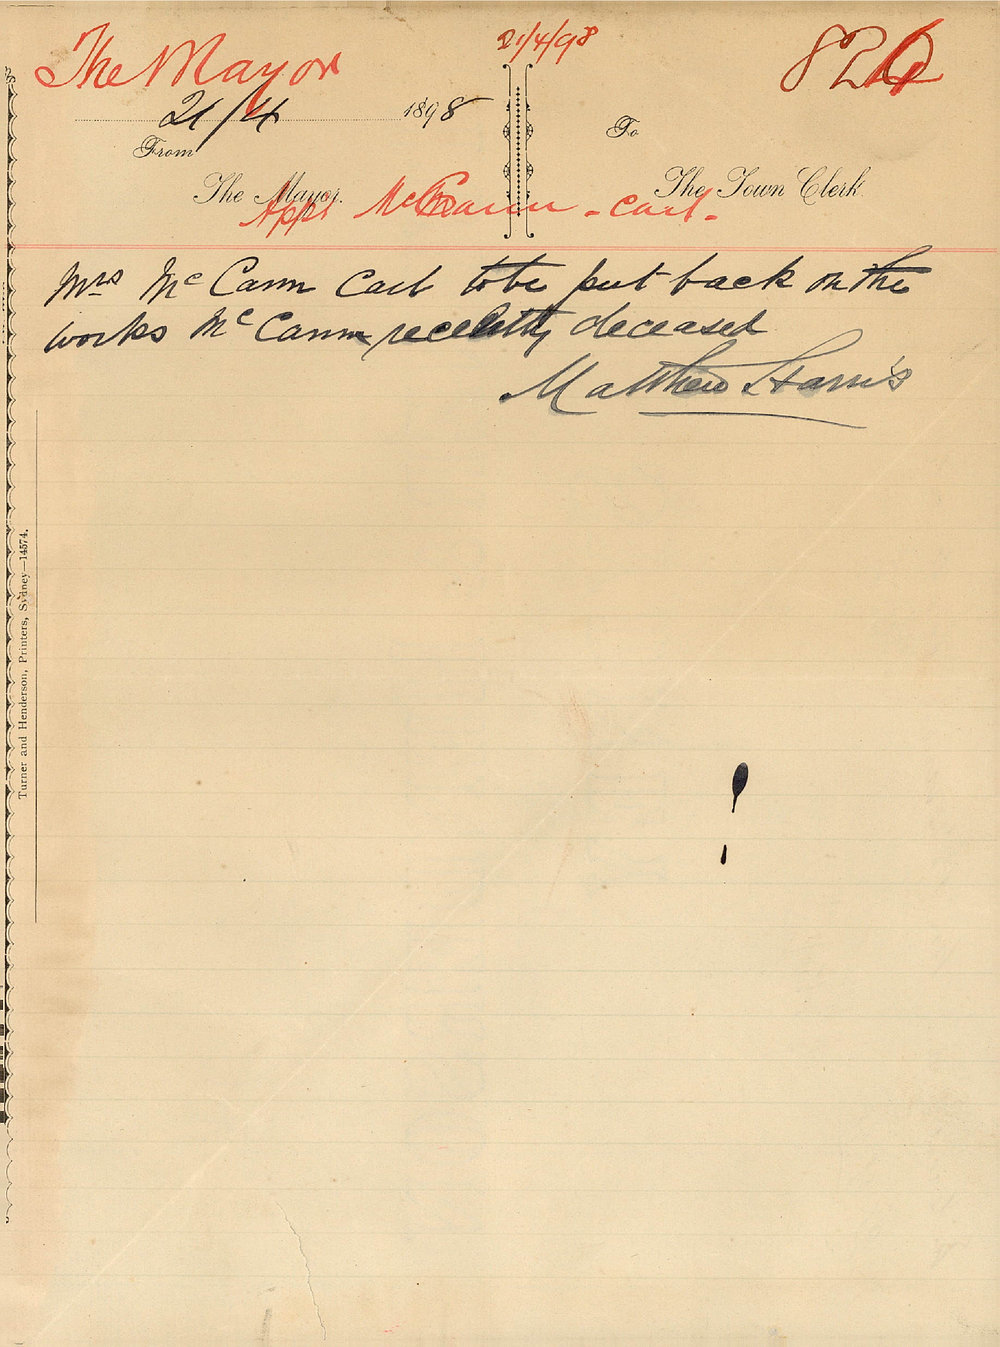 The Mayor
21/4/98
21/4 1898
From
To
The Mayor.
The Town Clerk
Appt McCann - Cart -
Mrs McCann Cart to be put back on the
works McCann recently deceased
Matthew Harris
Turner and Henderson, Printers, Sydney—14574.